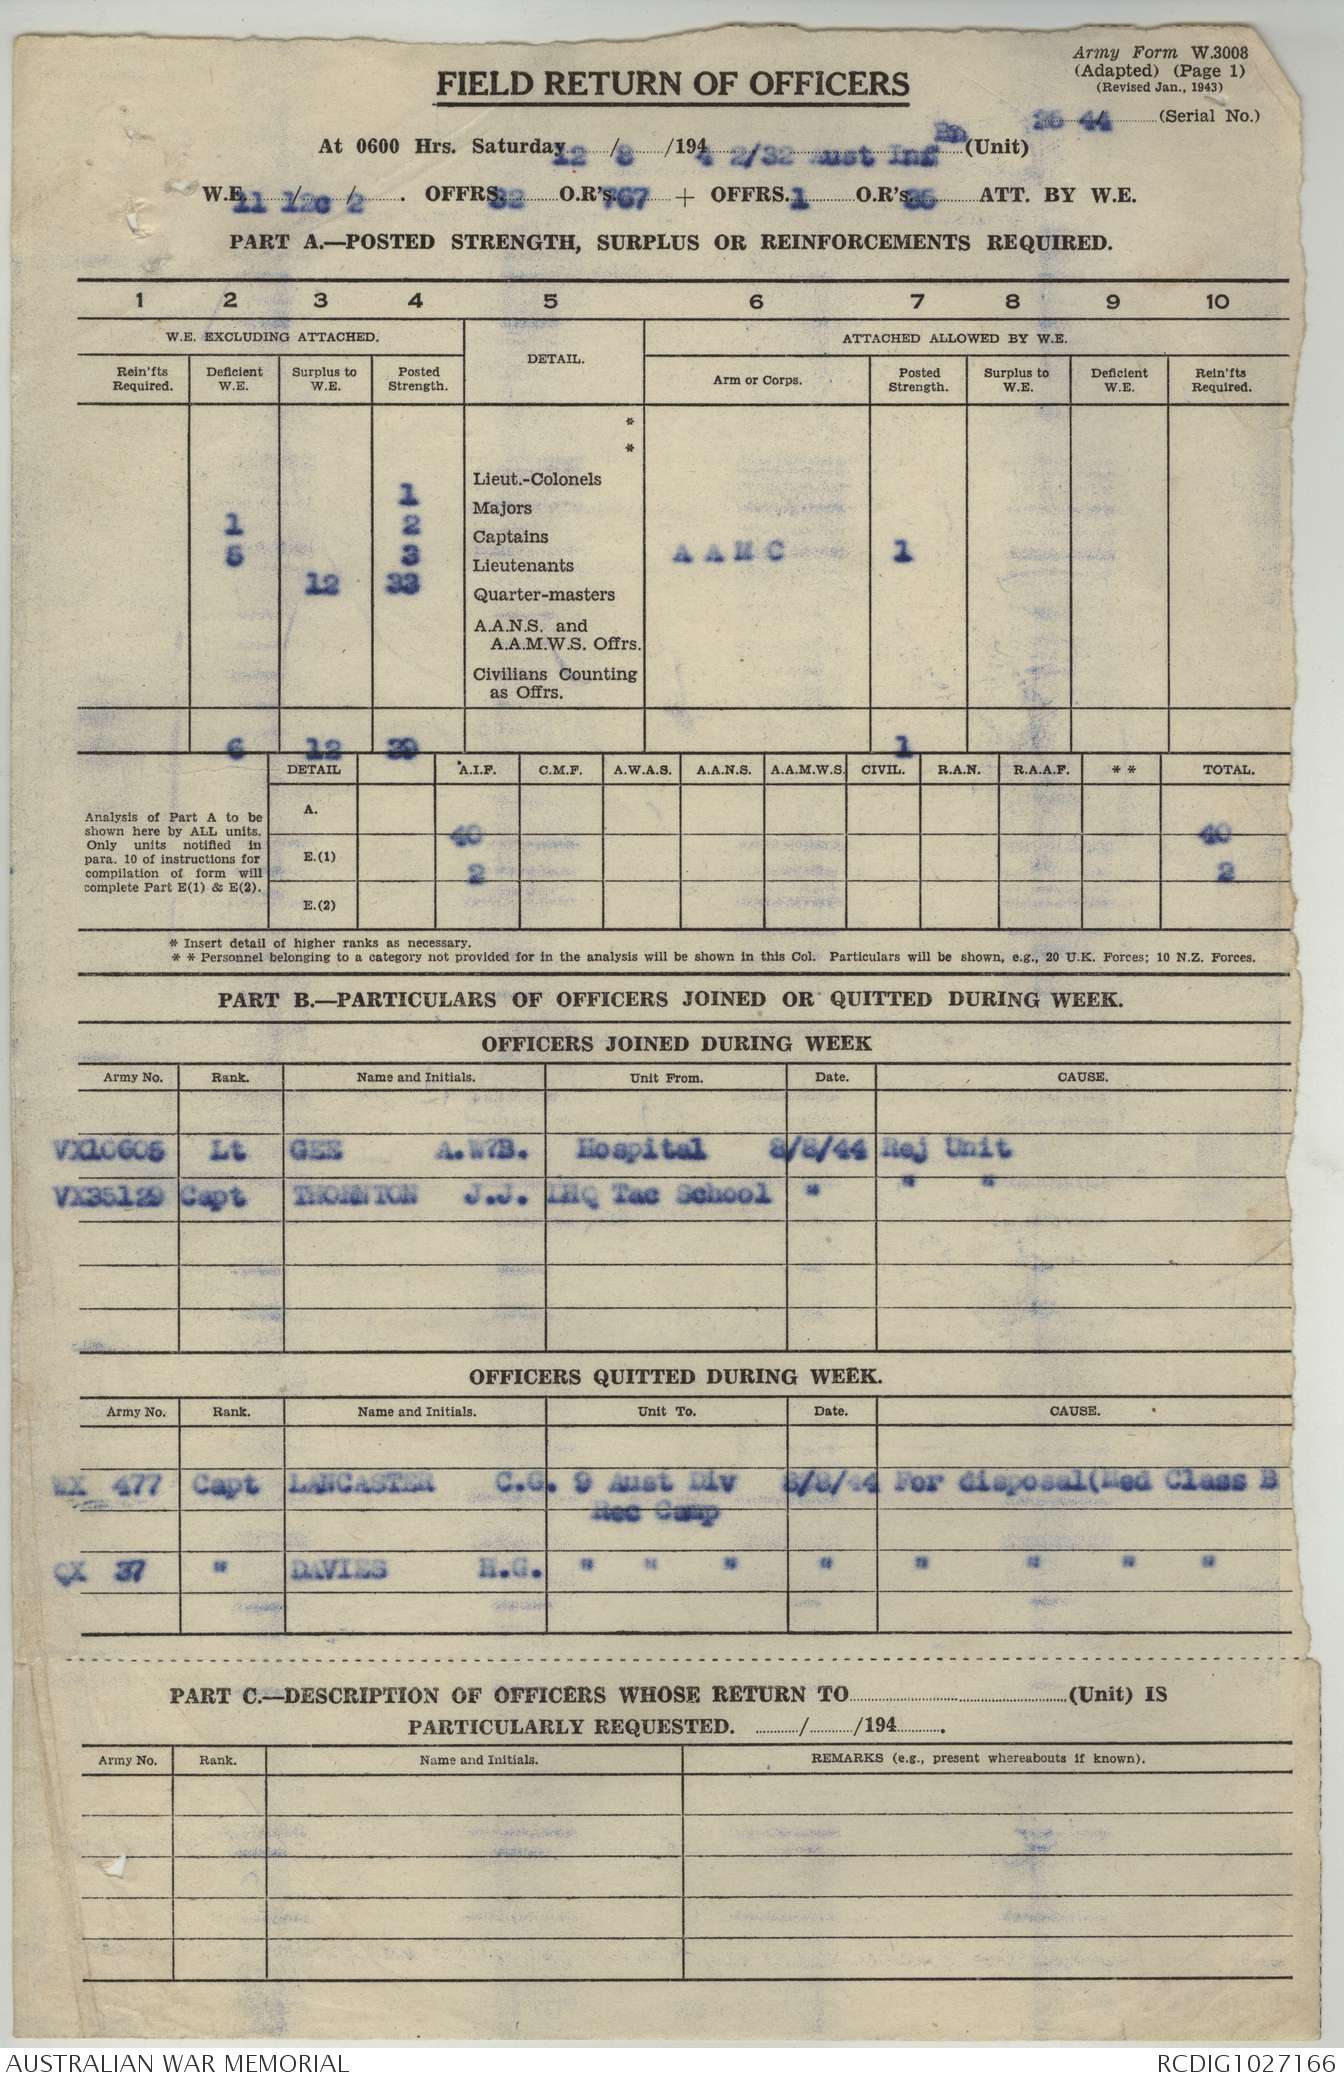 Army Form W.3008
(Adapted) (Page 1)
(Revised Jan., 1943)
FIELD RETURN OF OFFICERS
44 (Serial No.)
At 0600 Hrs. Saturday 12 / 8 /194 4 2/32 Aust Inf Bn (Unit)
W.E. 11 / 12c / 2 . OFFRS. 32 O.R's. 767 + OFFRS. 1 O.R's. ATT. BY W.E.
PART A.—POSTED STRENGTH, SURPLUS OR REINFORCEMENTS REQUIRED.
1 2 3 4 5 6 7 8 9 10
W.E. EXCLUDING ATTACHED. DETAIL. ATTACHED ALLOWED BY W.E.
Rein'fts Required. Deficient W.E. Surplus to W.E. Posted Strength. Arm or Corps. Posted Strength. Surplus to W.E. Deficient W.E. Rein'fts Required.
*
*
1 Lieut.-Colonels
1 2 Majors
5 3 Captains A A M C 1
12 33 Lieutenants
Quarter-masters
A.A.N.S. and
A.A.M.W.S. Offrs.
Civilians Counting
as Offrs.
6 12 39 1
DETAIL A.I.F. C.M.F. A.W.A.S. A.A.N.S. A.A.M.W.S. CIVIL. R.A.N. R.A.A.F. * * TOTAL.
Analysis of Part A to be
shown here by ALL units.
Only units notified in
para. 10 of instructions for
compilation of form will
complete Part E(1) & E(2).
A. 40 40
E.(1) 2 2
E.(2)
* Insert detail of higher ranks as necessary.
* * Personnel belonging to a category not provided for in the analysis will be shown in this Col. Particulars will be shown, e.g., 20 U.K. Forces; 10 N.Z. Forces.
PART B.—PARTICULARS OF OFFICERS JOINED OR QUITTED DURING WEEK.
OFFICERS JOINED DURING WEEK
Army No. Rank. Name and Initials. Unit From. Date. CAUSE.
VX10605 Lt GEE A.W?B. Hospital 8/8/44 Rej Unit
VX35129 Capt THORNTON J.J. LHQ Tac School " " "
OFFICERS QUITTED DURING WEEK.
Army No. Rank. Name and Initials. Unit To. Date. CAUSE.
WX 477 Capt LANCASTER C.G. 9 Aust Div 8/8/44 For disposal(Med Class B
Rec Camp
QX 37 " DAVIES H.G. " " " " " " " "
PART C.—DESCRIPTION OF OFFICERS WHOSE RETURN TO (Unit) IS
PARTICULARLY REQUESTED. / /194 .
Army No. Rank. Name and Initials. REMARKS (e.g., present whereabouts if known).
AUSTRALIAN WAR MEMORIAL RCDIG1027166